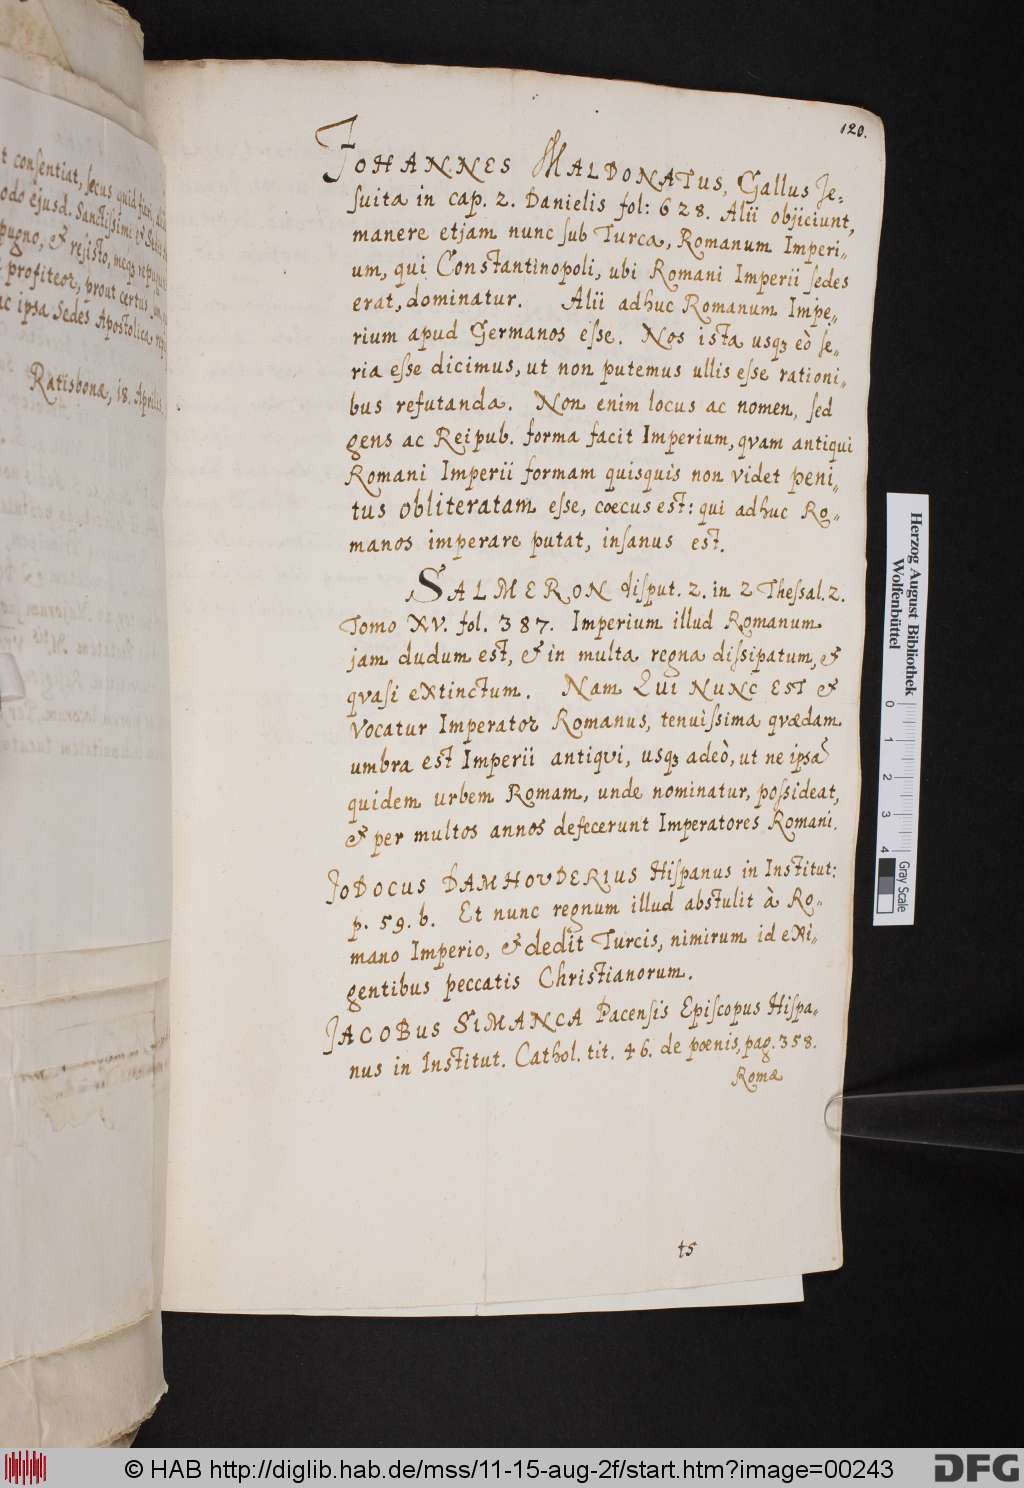 t consentiat, secus quid fieri, dici
odo ejusd. Sanctissimi et Sedis
pugno, et resisto, meqȝ repugna
profiteor, prout certus sum
ac ipsa Sedes Apostolica
Ratisbonæ, 18. Aprilis
120.
JOHANNES MALDONATUS, Gallus Je-
suita in cap. 2. Danielis fol: 628. Alii objiciunt,
manere etjam nunc sub Turca, Romanum Imperi-
um, qui Constantinopoli, ubi Romani Imperii sedes
erat, dominatur. Alii adhuc Romanum Impe-
rium apud Germanos esse. Nos ista usqȝ eò se-
ria esse dicimus, ut non putemus ullis esse rationi-
bus refutanda. Non enim locus ac nomen, sed
gens ac Reipub. forma facit Imperium, qvam antiqui
Romani Imperii formam quisquis non videt peni-
tus obliteratam esse, coecus est: qui adhuc Ro-
manos imperare putat, insanus est.
SALMERON disput. 2. in 2 Thessal. 2.
Tomo XV. fol. 387. Imperium illud Romanum
jam dudum est, et in multa regna dissipatum, et
qvasi extinctum. Nam QUI NUNC EST et
vocatur Imperator Romanus, tenuissima qvædam
umbra est Imperii antiqvi, usqȝ adeò, ut ne ipsã
quidem urbem Romam, unde nominatur, possideat,
et per multos annos defecerunt Imperatores Romani.
JODOCUS DAMHOUDERIUS Hispanus in Institut:
p. 59. b. Et nunc regnum illud abstulit à Ro-
mano Imperio, et dedit Turcis, nimirum id exi-
gentibus peccatis Christianorum.
JACOBUS SIMANCA Pacensis Episcopus Hispa-
nus in Institut. Cathol. tit. 46. de poenis, pag. 358.
Romæ
t5
Herzog August Bibliothek
Wolfenbüttel
0 1 2 3 4
Gray Scale
© HAB http://diglib.hab.de/mss/11-15-aug-2f/start.htm?image=00243
DFG